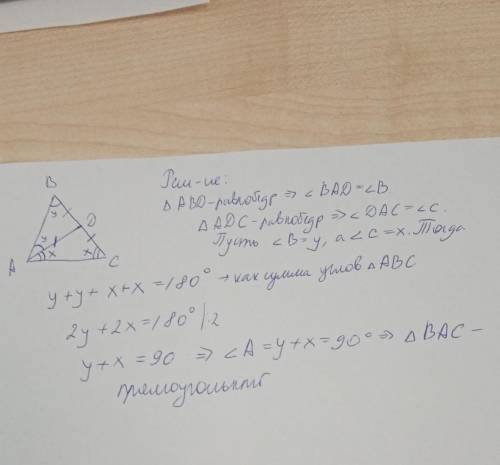 B
y
D
y
x
x
A
C
Реш-ие:
△ABD-равнобедр ⇒ ∠BAD=∠B
△ADC-равнобедр ⇒ ∠DAC=∠C.
Пусть ∠B=y, а ∠C=x. Тогда
y+y+x+x=180° → как сумма углов △ABC
2y+2x=180° |:2
y+x=90 ⇒ ∠A=y+x=90° ⇒ △BAC-
прямоугольный